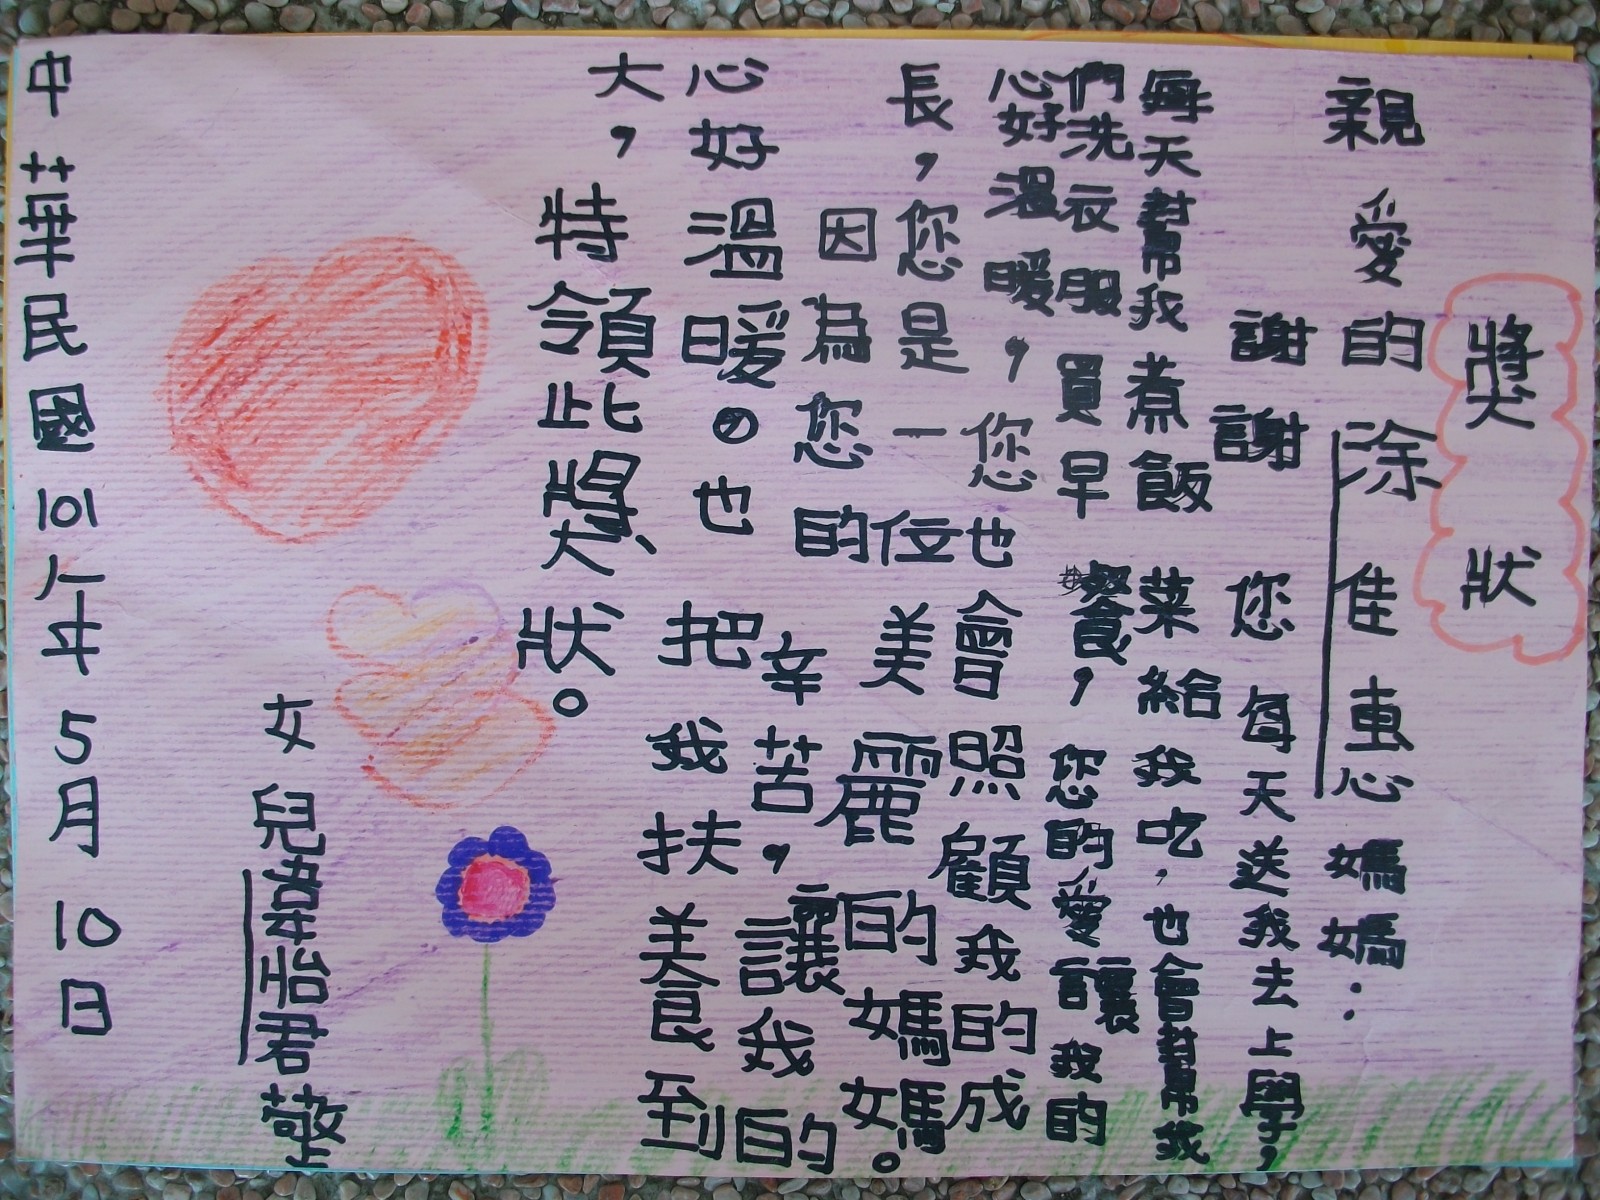 獎狀
親愛的涂佳惠媽媽：
謝謝您每天送我去上學，
每天幫我煮飯菜給我吃，也會幫我
們洗衣服買早餐，您的愛讓我的
心好溫暖，您也會照顧我的成
長，您是一位美麗的媽媽。
因為您的辛苦，讓我的
心好溫暖。也把我扶養到
大，特領此獎狀。
女兒怡君敬
中華民國101年5月10日